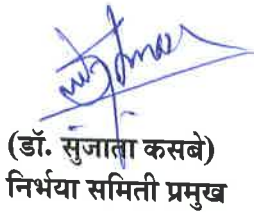 (डॉ. सुजाता कसबे)
निर्भया समिती प्रमुख